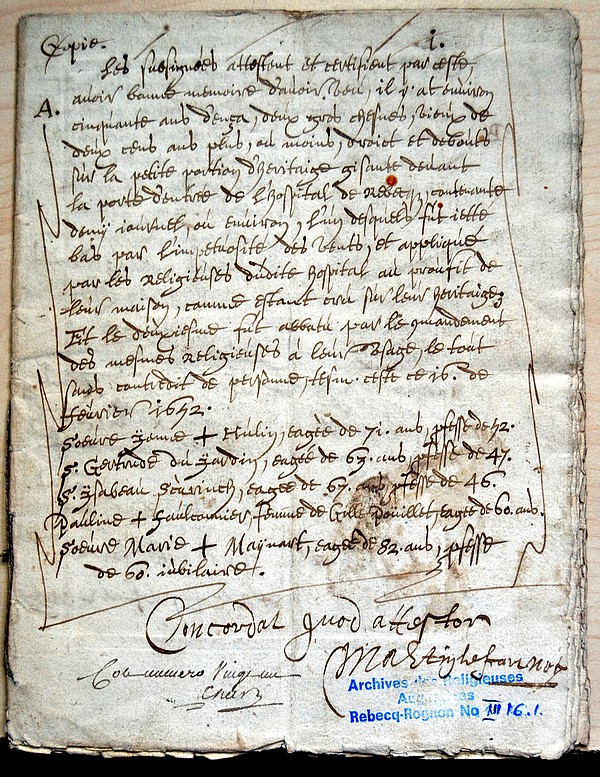 Copie. 1.
Les subsignées attestent et certifient par ceste
A. avoir bonne memoire d'avoir veu, il y at environ
cinquante ans d'ença, deux gros chesnes, vieux de
deux cens ans plus, ou moins, droict et debouts
sur la petite portion d'heritaige gisante devant
la porte d'entre de l'hospital de Rebecq, contenante
demÿ iournel, ou environ, l'un desquels fut iette
bas par l'impetuosité des vents, et appliqué
par les Religieuses dudite hospital au proufit de
leur maison, comme estant creu sur leur heritaige;
Et le deuxiesme fut abbatu par le commandement
des mesmes Religieuses à leur usage, le tout
sans contredit de personne, tesm. ceste ce 16. de
febvrier 1652.
Soeure + Hulin, eagée de 71. ans, pfesse de 52.
Sr. Gertrude du Jardin, eagée de 63. ans, pfesse de 47.
Sr. Ysabeau, eagée de 67. ans, pfesse de 46.
Pauline +, femme de Gille Pouillet, eagée de 60. ans.
Soeure Marie + Maynart, eagée de 82. ans, pfesse
de 60. iubilaire.
Concordat quod attestor
Cote numero vingt un
Archives des Religieuses
Augustines
Rebecq-Rognon No III 16.1.